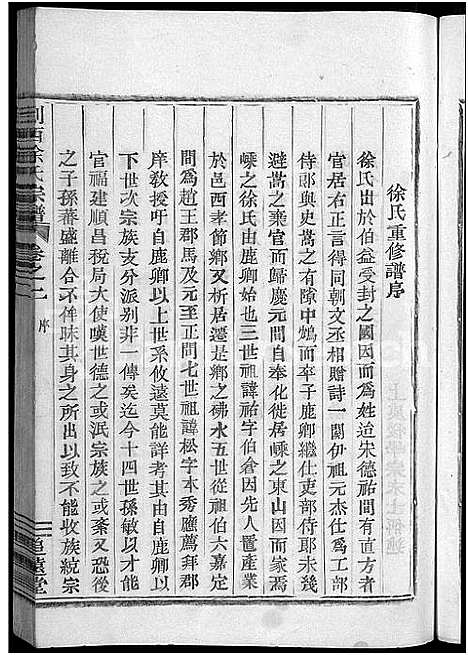 徐氏重修譜序
徐氏出於伯益受封之國因而爲姓迨宋德祐間有直方者
官居右正言得同朝文丞相贈詩一闋伊祖元杰仕爲工部
侍郎與史嵩之有隙中鴆而卒子鹿卿繼仕吏部侍郎未幾
避嵩之棄官而歸慶元間自奉化徙居嵊之東山因而家焉
嵊之徐氏由鹿卿始也三世祖諱祐字伯倉因先人置產業
於邑西孝節鄉又析居遷是鄉之砩水五世從祖伯六嘉定
間爲趙王郡馬及元至正間七世祖諱松字本秀應薦拜郡
庠敎授吁自鹿卿以上世次攸遠莫能詳考其由自鹿卿以
下世次宗族支分派別非一傳矣迄今十四世孫敏以才能
官福建順昌稅局大使嘆世德之或泯宗族之或紊又恐後
之子孫蕃盛離合不侔昧其身之所出以致不能收族統宗
剡西徐氏宗譜
卷之一
序
追遠堂